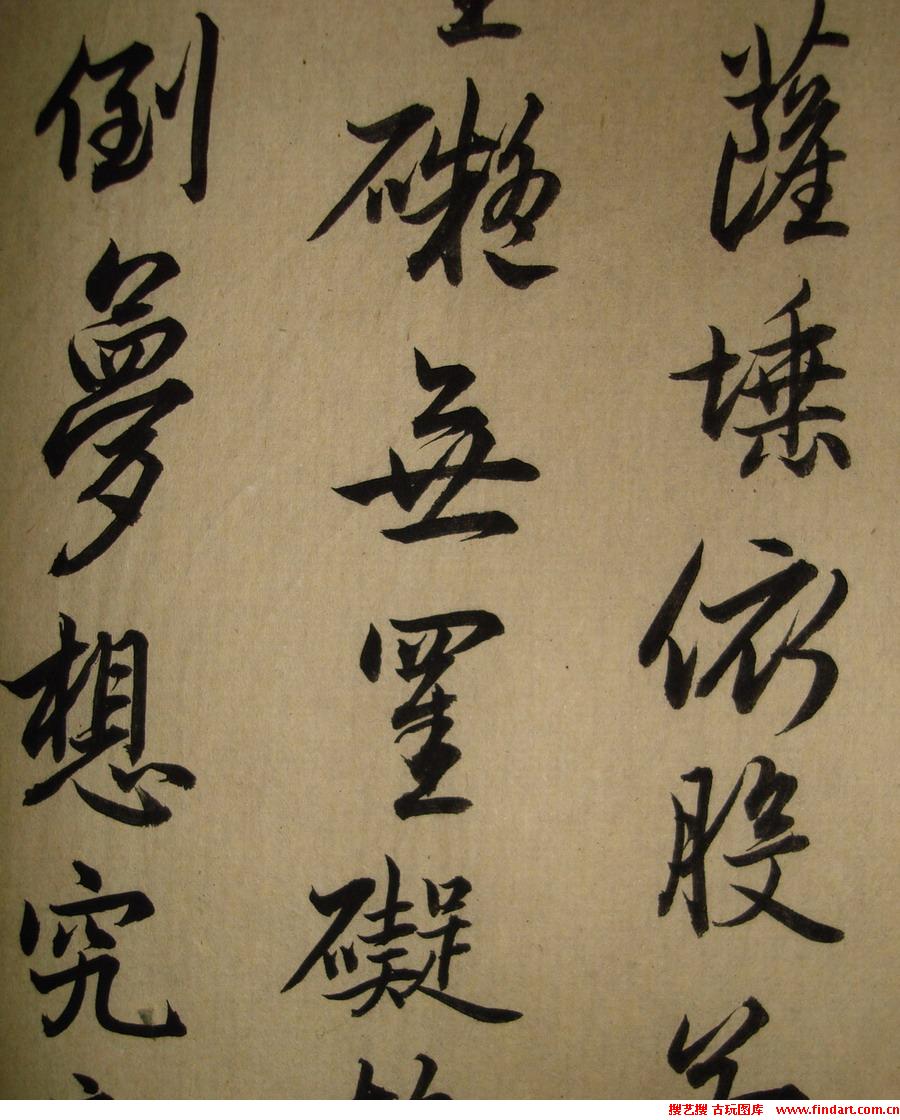 薩埵依般
礙無罣礙
倒夢想究
搜艺搜 古玩图库 www.findart.com.cn